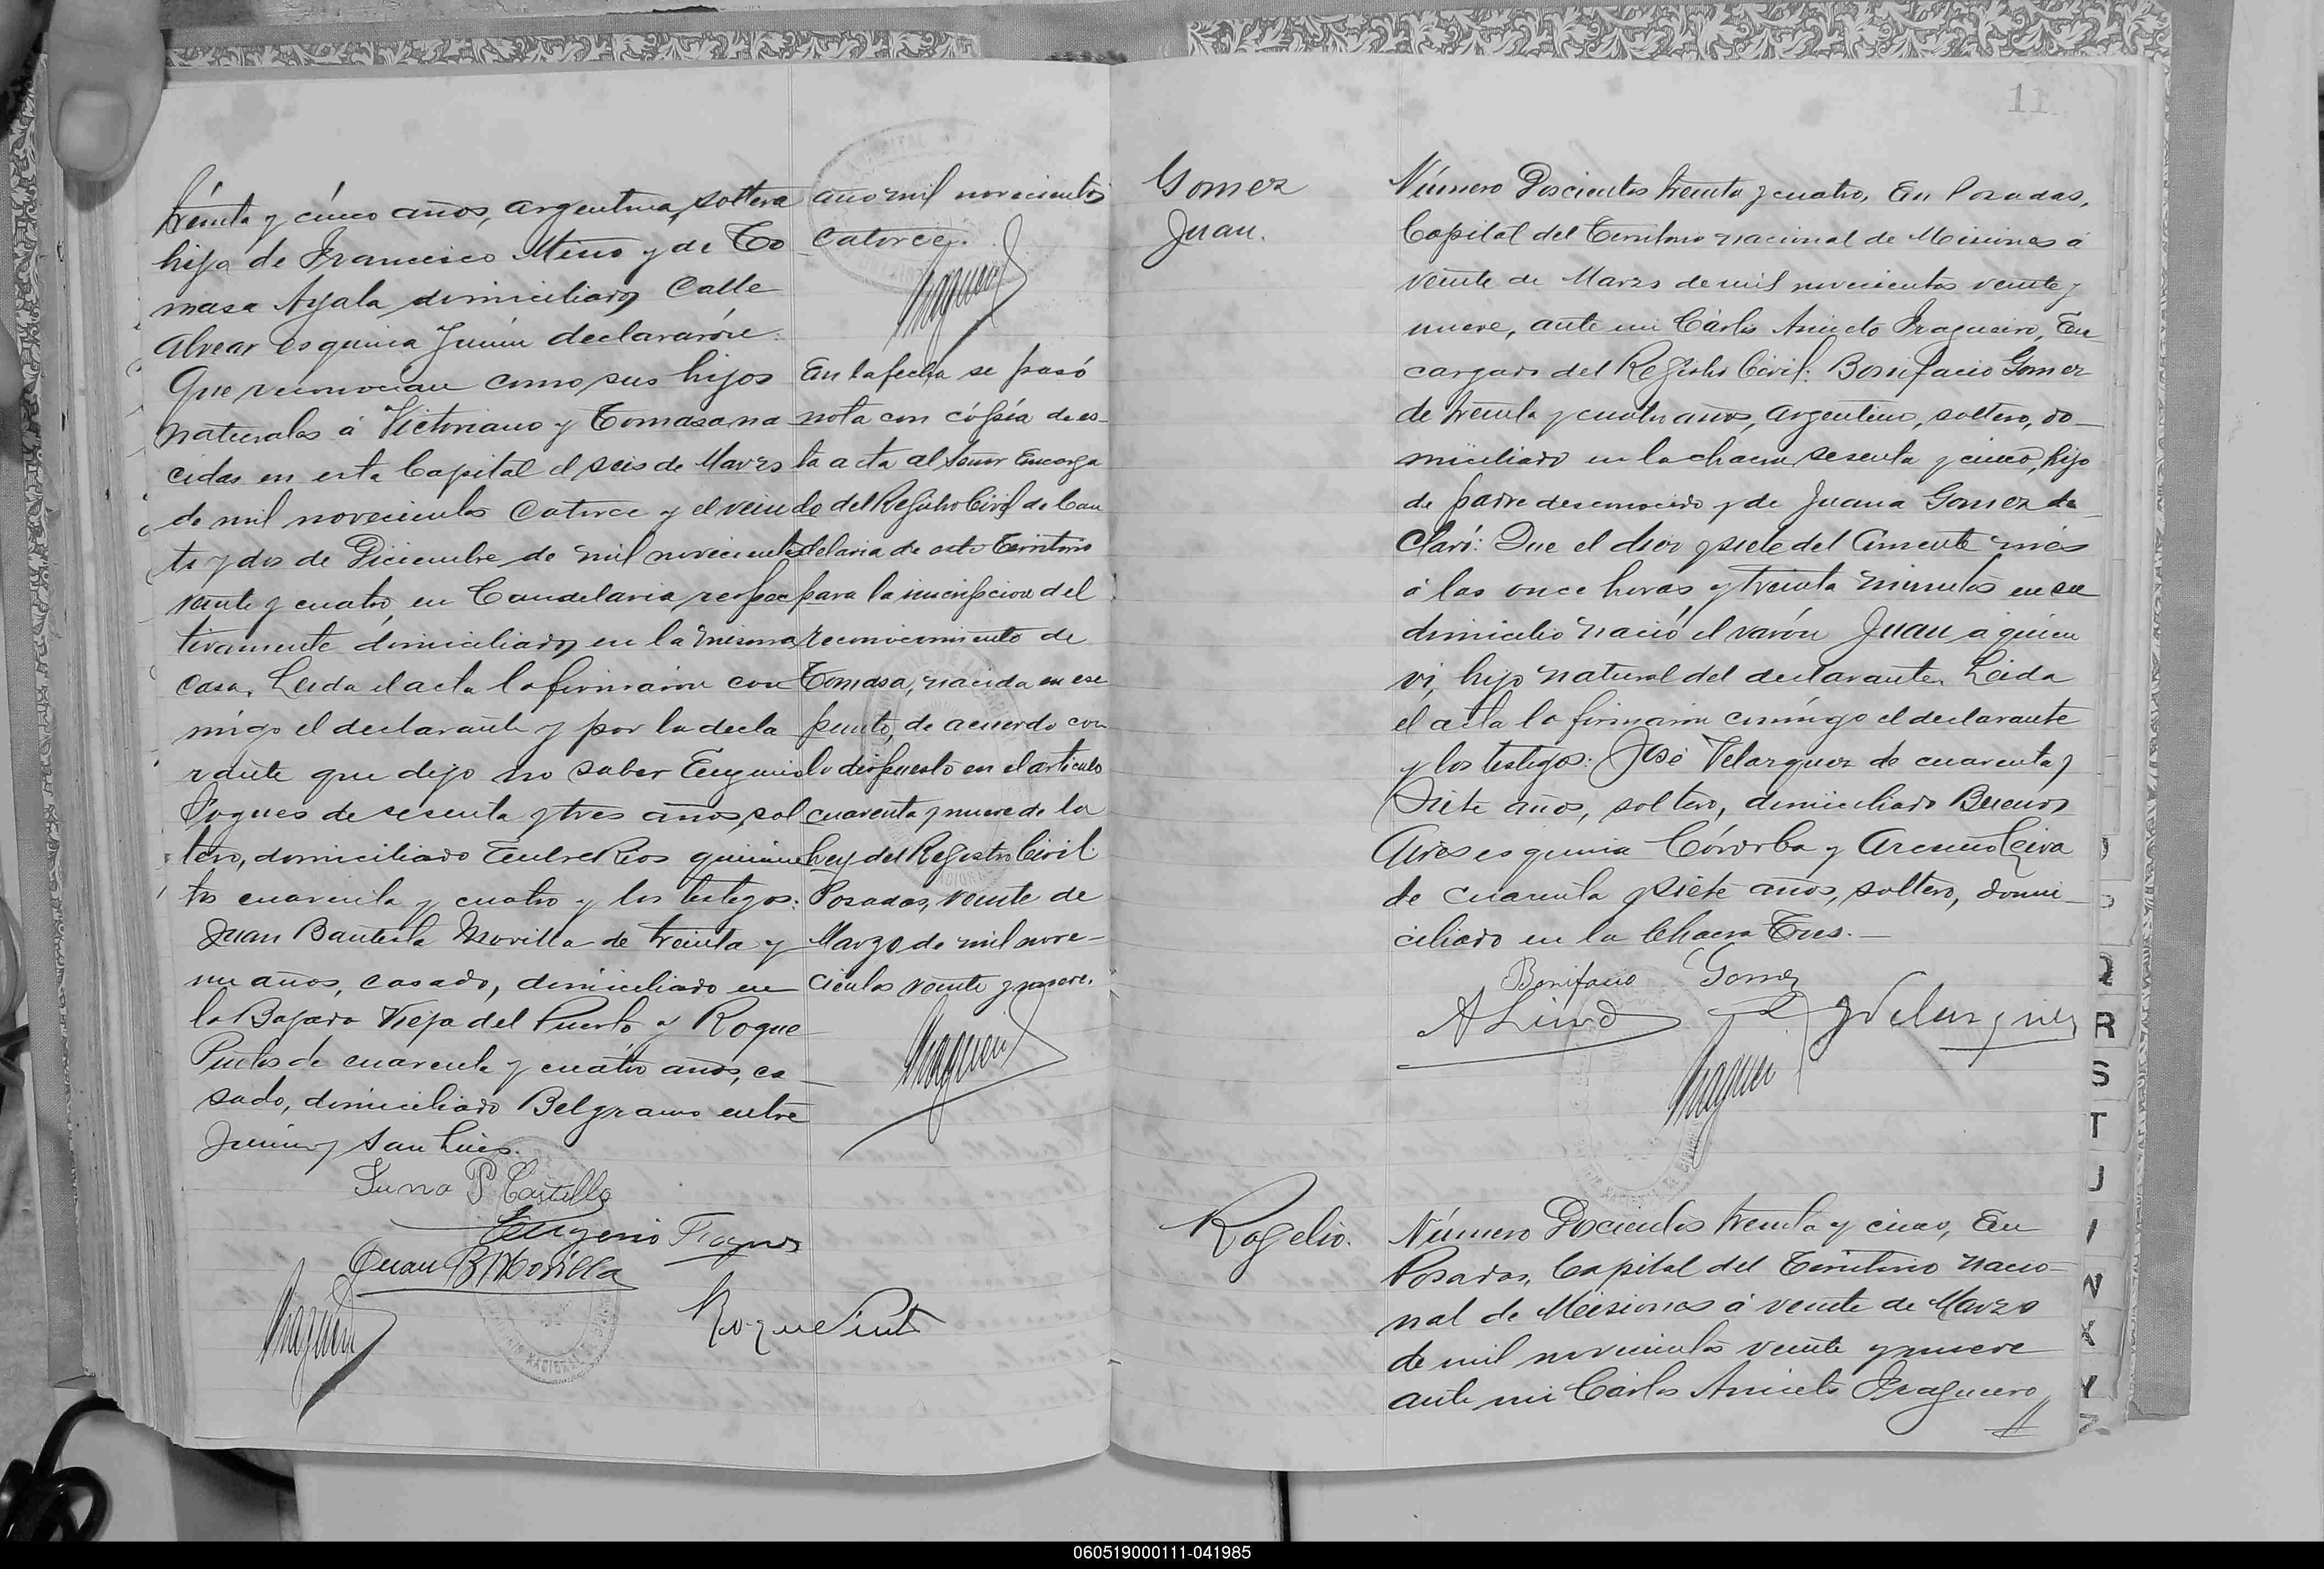 treinta y cinco años, argentina, soltera
hija de Francisco Mino y de To
masa Ayala domiciliados Calle
Alvear esquina Junin declararón:
Que reconocian como sus hijos
naturales á Victoriano y Tomasa na
cidas en esta Capital el seis de Marzo
de mil novecientos Catorce y el vein
te y dos de Diciembre de mil novecientos
veinte y cuatro en Candelaria respec
tivamente domiciliados en la misma
casa. Leida el acta la firmaron con
migo el declarante y por la decla
rante que dijo no saber Eugenio
de sesenta y tres años, sol
tero, domiciliado Entre Rios quinien
tos cuarenta y cuatro y los testigos:
Juan Bautista Morilla de treinta y
un años, casado, domiciliado en
la Bajada Vieja del Puerto y Roque
de cuarenta y cuatro años, ca
sado, domiciliado Belgrano entre
Junin y San Luis.
P Castillo
Eugenio
Juan B Morilla
Roque
año mil novecientos
catorce.
En la fecha se pasó
nota con cópia de es-
ta acta al Señor Encarga
do del Registro Civil de Can
delaria de este Territorio
para la inscripcion del
reconocimiento de
Tomasa, nacida en ese
punto, de acuerdo con
lo dispuesto en el artículo
cuarenta y nueve de la
Ley del Registro Civil.
Posadas, veinte de
Marzo de mil nove-
cientos veinte y nueve.
11
Gomez
Juan.
Número Doscientos treinta y cuatro, En Posadas,
Capital del Territorio nacional de Misiones á
veinte de Marzo de mil novecientos veinte y
nueve, ante mi Cárlos Aniceto Fragueiro, En
cargado del Registro Civil: Bonifacio Gomez
de treinta y cuatro años, argentino, soltero, do-
miciliado en la chacra sesenta y cinco, hijo
de padre desconocido y de Juana Gomez de
claró: Que el diez y siete del corriente mes
á las once horas y treinta minutos en su
domicilio nació el varón Juan a quien
vi, hijo natural del declarante. Leida
el acta la firmaron conmigo el declarante
y los testigos: José Velazquez de cuarenta y
siete años, soltero, domiciliado Buenos
Aires esquina Córdoba y Leiva
de cuarenta y siete años, soltero, domi-
ciliado en la Chacra Tres.-
Bonifacio Gomez
J Velazquez
Rogelio.
Número Doscientos treinta y cinco, En
Posadas, Capital del Territorio nacio-
nal de Misiones á veinte de Marzo
de mil novecientos veinte y nueve
ante mi Cárlos Aniceto Fragueiro
Q
R
S
T
J
I
N
X
Y
Z
060519000111-041985